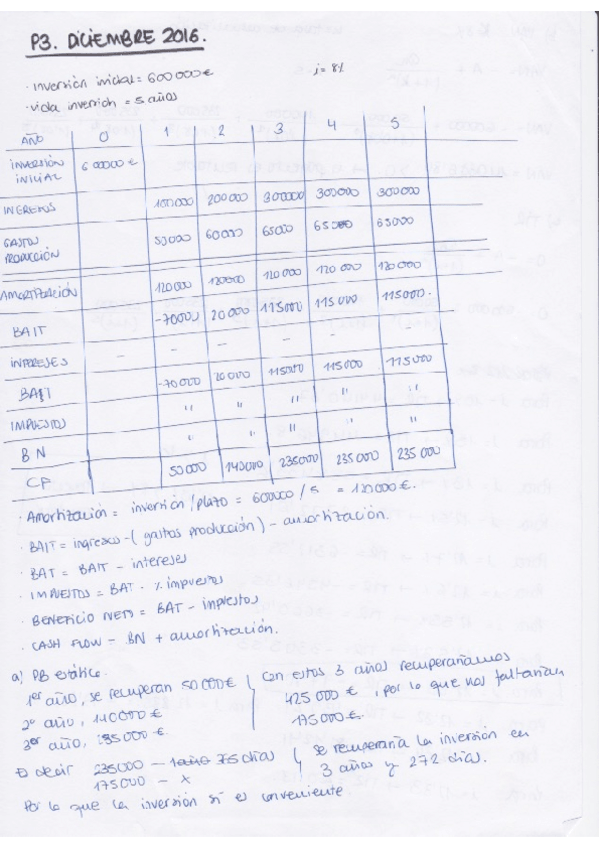 P3. DICIEMBRE 2016.
· inversión inicial = 600000€ i = 8%
· vida inversión = 5 años
AÑO 0 1 2 3 4 5
INVERSIÓN INICIAL 600000 €
INGRESOS 100000 200000 300000 300000 300000
GASTOS PRODUCCIÓN 50000 60000 65000 65000 65000
AMORTIZACIÓN 120000 120000 120 000 120 000 120 000
BAIT -70000 20 000 115000 115 000 115000.
INTERESES - - - - -
BAIT -70 000 20000 115000 115000 115000
IMPUESTOS " " " " "
BN " " " " "
CF 50 000 140000 235000 235 000 235 000
· Amortización = inversión / plazo = 600000 / 5 = 120000 €.
· BAIT = ingresos - ( gastos producción ) - amortización.
· BAT = BAIT - intereses
· IMPUESTOS = BAT · % impuestos
· BENEFICIO NETO = BAT - impuestos
· CASH FLOW = BN + amortización.
a) PB estático.
1er año, se recuperan 50 000€
2º año, 140000 €
3er año, 235000 €
Con estos 3 años recuperaríamos
425 000 € , por lo que nos faltarían
175 000 €.
Es decir 235000 — 1 año 365 días
175000 — x
se recuperaría la inversión en
3 años y 272 días.
Por lo que la inversión sí es conveniente.